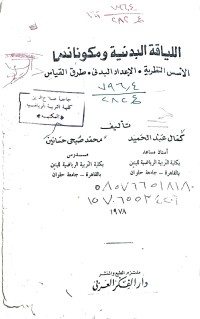 ٧٩٦,٤
اللياقة البدنية ومكوناتها
الأسس النظرية • الإعداد البدني • طرق القياس
٧٩٦,٤
كلية التربية الرياضية
المكتبة
تأليف
كمال عبد الحميد
محمد صبحي حسانين
أستاذ مساعد
مدرس
بكلية التربية الرياضية للبنين
بكلية التربية الرياضية للبنين
بالقاهرة - جامعة حلوان
بالقاهرة - جامعة حلوان
١٩٧٨
ملتزم الطبع والنشر
دار الفكر العربي